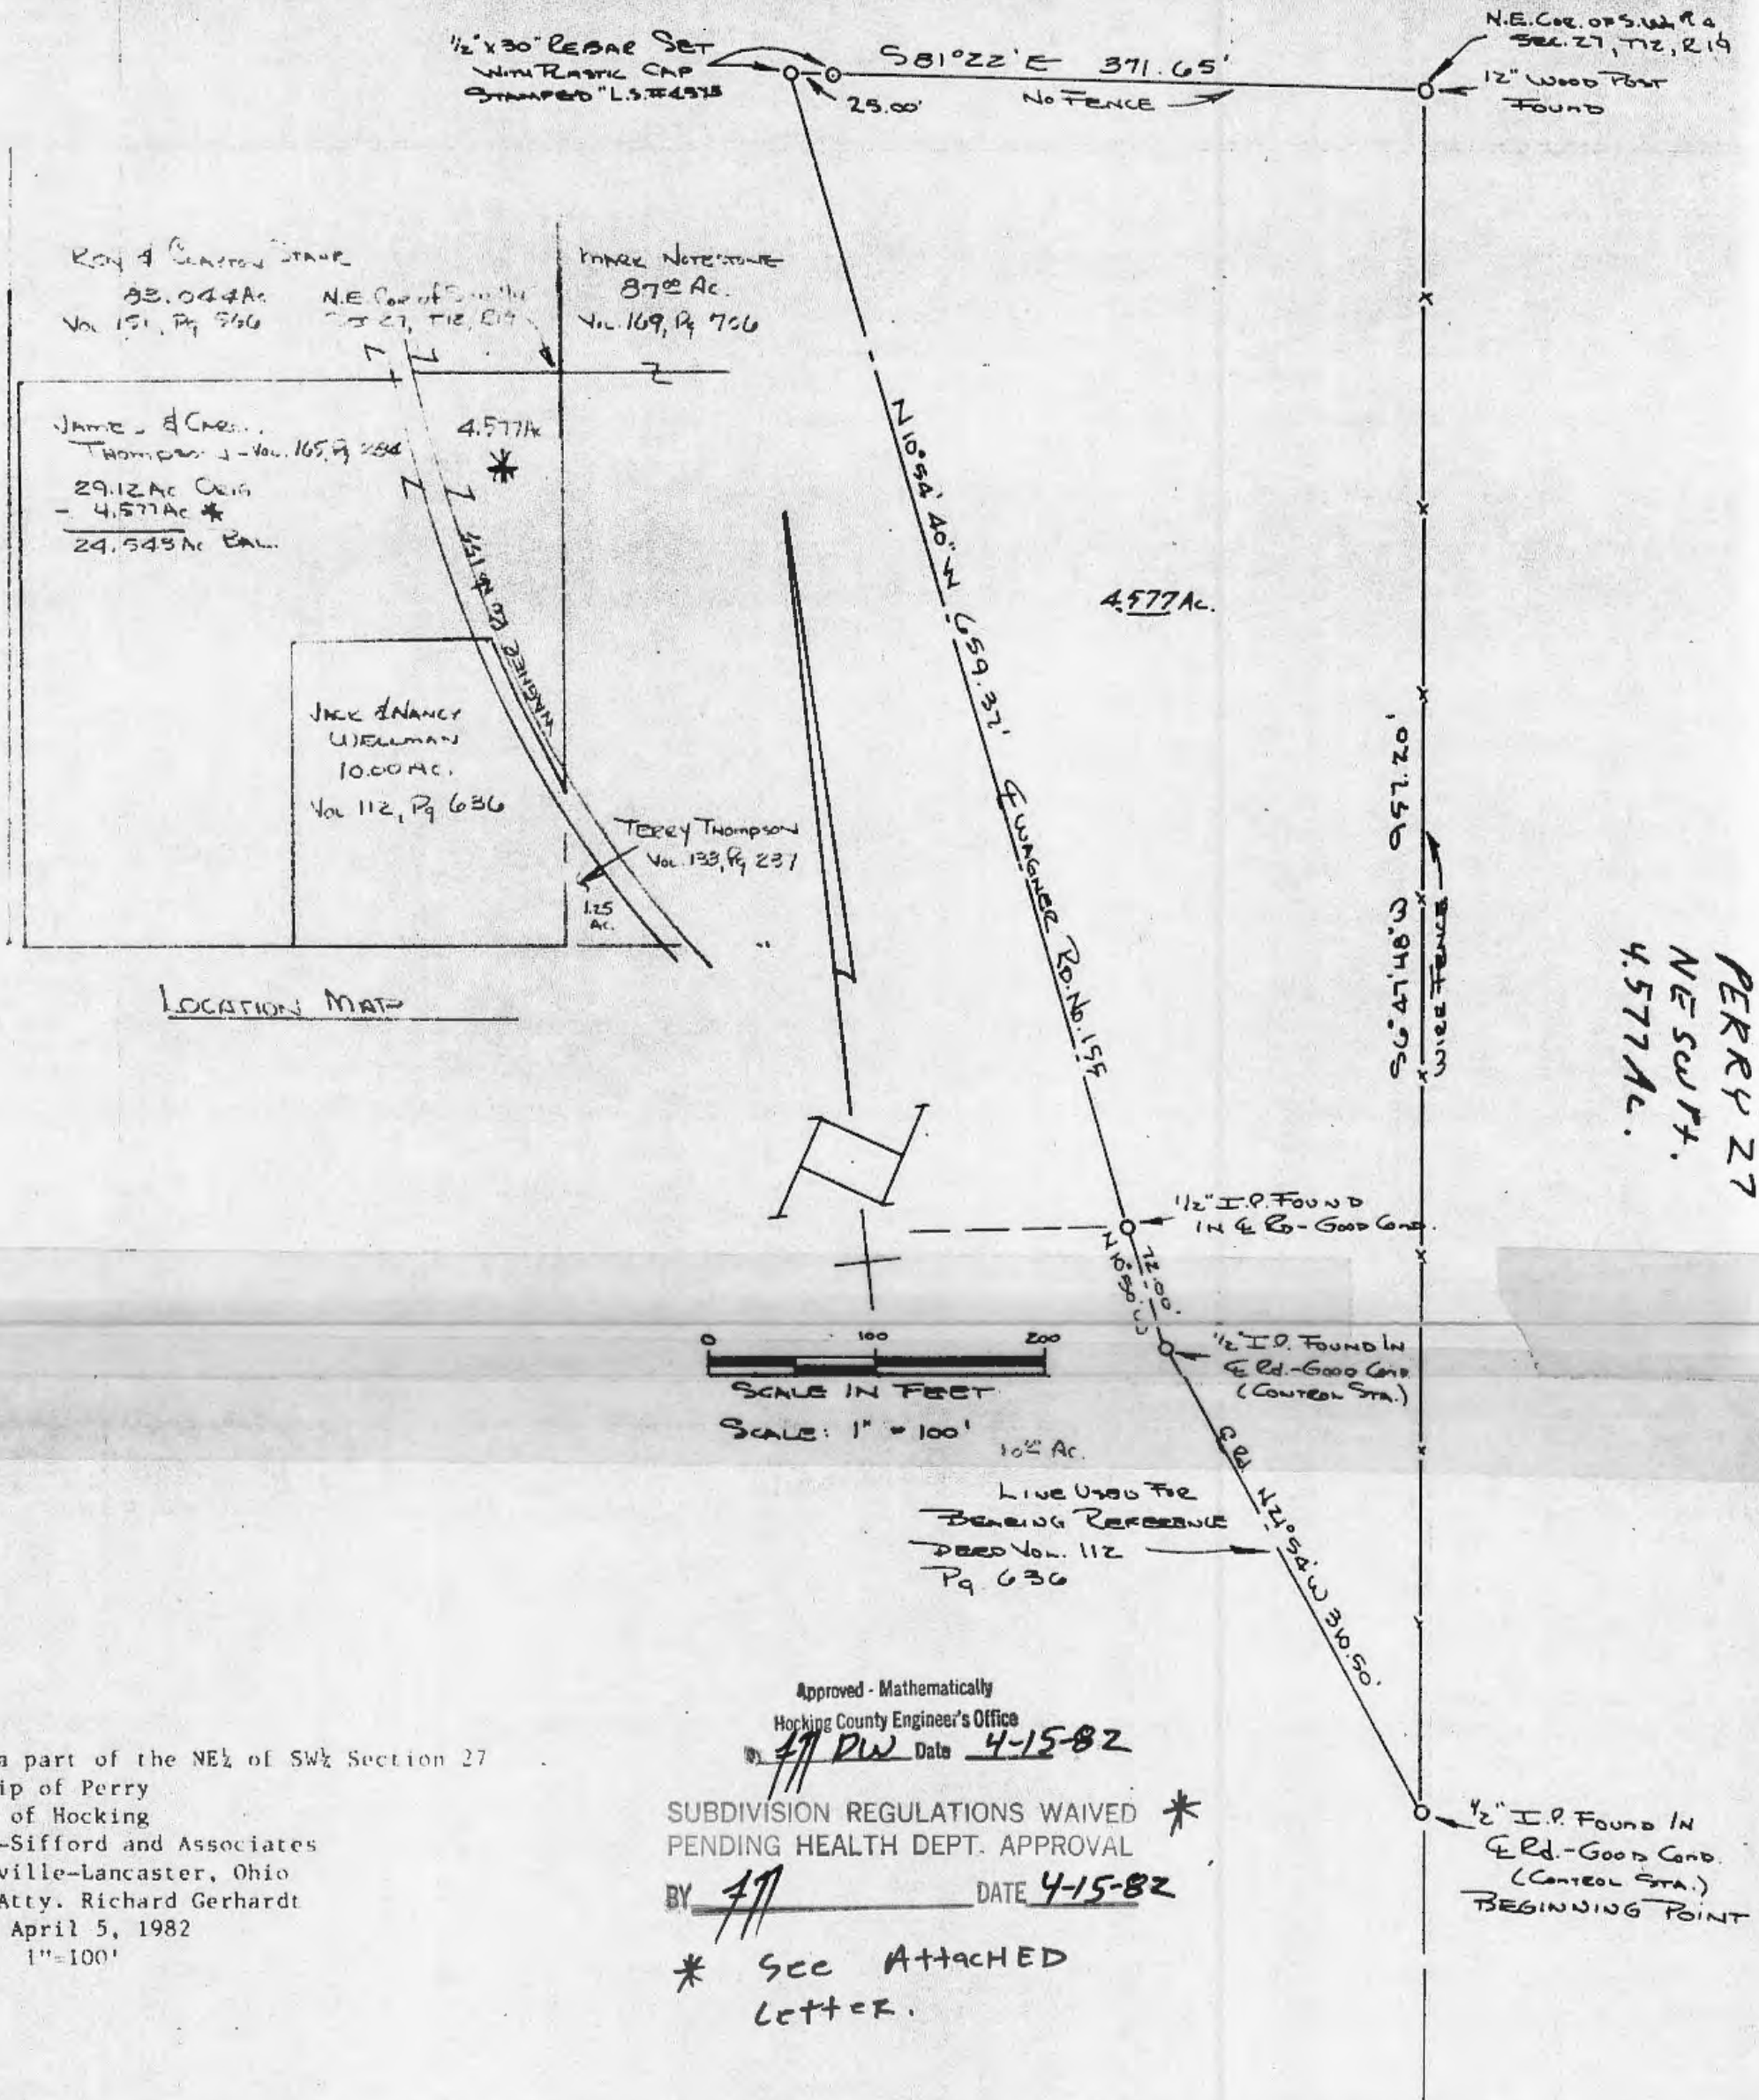 1/2" x 30" REBAR SET
WITH PLASTIC CAP
STAMPED "L.S.#4575
25.00'
S81°22'E 371.65'
NO FENCE
N.E. COR. OF S.W. 1/4
SEC. 27, T12, R19
12" WOOD POST
FOUND
ROY & CLAYTON
83.044 Ac
Vol 151, Pg 566
N.E. Cor of
27, T12, R19
MARK NOTESTONE
87 00 Ac.
Vol. 169, Pg 706
JAMES &
THOMPSON - Vol. 165, Pg
29.12 Ac ORIG
- 4.577 Ac *
24.543 Ac BAL.
4.577 Ac
*
WAGNER RD. No 155
JACK & NANCY
WELLMAN
10.00 AC.
Vol 112, Pg 636
TERRY THOMPSON
Vol. 133, Pg 237
1.25
AC.
LOCATION MAP
N10°54'40"W 659.37'
℄ WAGNER RD. No. 155
4.577 Ac.
S6°47'48"W 957.20'
WIRE FENCE
PERRY 27
NE SW Pt.
4.577 Ac.
N
1/2" I.P. FOUND
IN ℄ RD - GOOD COND.
N10°50'W
72.00'
1/2" I.P. FOUND IN
℄ Rd. - GOOD COND.
(CONTROL STA.)
0 100 200
SCALE IN FEET
SCALE: 1" = 100'
10 00 Ac.
LINE USED FOR
BEARING REFERENCE
DEED VOL. 112
Pg 636
℄ Rd. N21°54'W 310.50'
Approved - Mathematically
Hocking County Engineer's Office
DW Date 4-15-82
SUBDIVISION REGULATIONS WAIVED *
PENDING HEALTH DEPT. APPROVAL
BY DATE 4-15-82
* See AttacHED
Letter.
a part of the NE¼ of SW¼ Section 27
ip of Perry
of Hocking
-Sifford and Associates
ville-Lancaster, Ohio
Atty. Richard Gerhardt
April 5, 1982
1"=100'
1/2" I.P. FOUND IN
℄ Rd. - GOOD COND.
(CONTROL STA.)
BEGINNING POINT